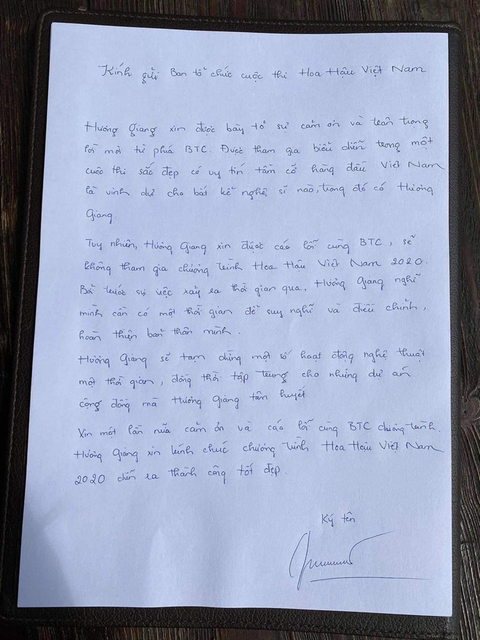 Kính gửi Ban tổ chức cuộc thi Hoa Hậu Việt Nam
Hương Giang xin được bày tỏ sự cảm ơn và trân trọng
lời mời từ phía BTC. Được tham gia biểu diễn trong một
cuộc thi sắc đẹp có uy tín, tầm cỡ hàng đầu Việt Nam
là vinh dự cho bất kể nghệ sĩ nào, trong đó có Hương
Giang.
Tuy nhiên, Hương Giang xin được cáo lỗi cùng BTC, sẽ
không tham gia chương trình Hoa Hậu Việt Nam 2020.
Bởi trước sự việc xảy ra thời gian qua, Hương Giang nghĩ
mình cần có một thời gian để suy nghĩ và điều chỉnh,
hoàn thiện bản thân mình.
Hương Giang sẽ tạm dừng một số hoạt động nghệ thuật
một thời gian, đồng thời tập trung cho những dự án
cộng đồng mà Hương Giang tâm huyết
Xin một lần nữa cảm ơn và cáo lỗi cùng BTC chương trình.
Hương Giang xin kính chúc chương trình Hoa Hậu Việt Nam
2020 diễn ra thành công tốt đẹp.
Ký tên